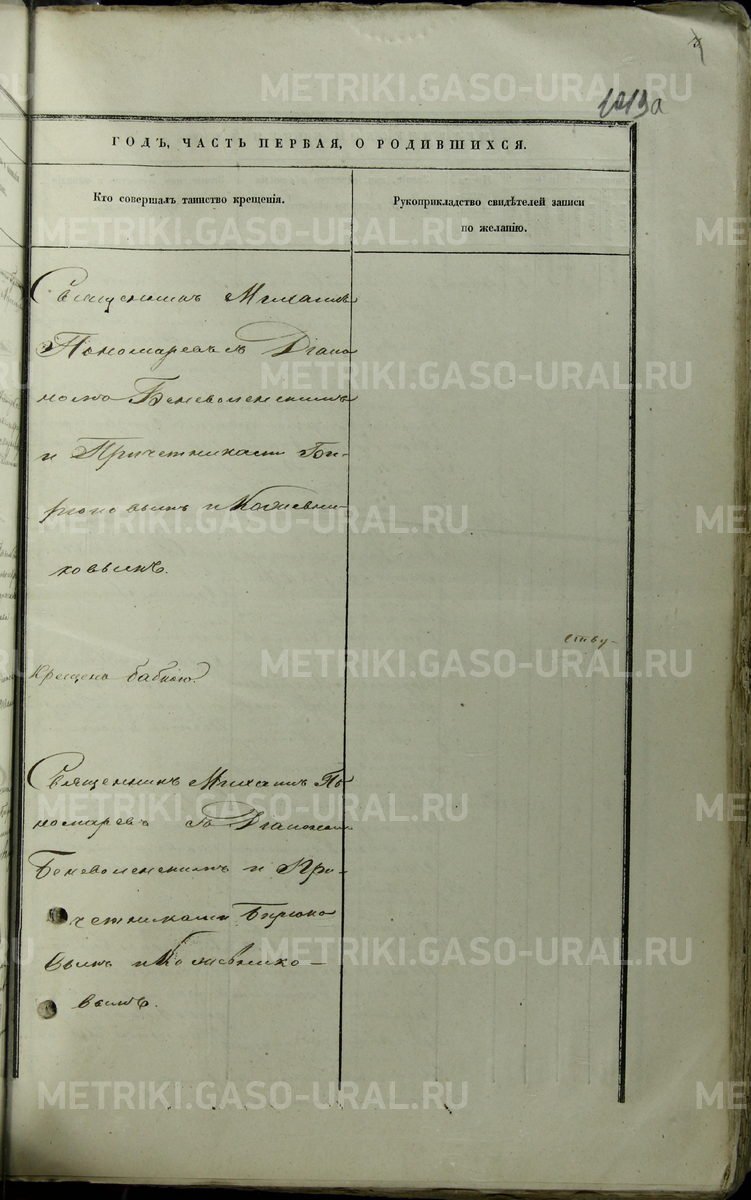 1013а
ГОДЪ, ЧАСТЬ ПЕРВАЯ, О РОДИВШИХСЯ.
Кто совершалъ таинство крещенія.
Рукоприкладство свидѣтелей записи
по желанію.
Священникъ Михаилъ
Пономаревъ съ Діако
номъ Беневоленскимъ
и Причетниками Би-
рюковымъ и Кожевни-
ковымъ.
ству-
Крещенъ бабкою.
Священникъ Михаилъ По
номаревъ съ Діакономъ
Беневоленскимъ и При-
четниками Бирюко
вымъ и Кожевнико-
вымъ.
METRIKI.GASO-URAL.RU